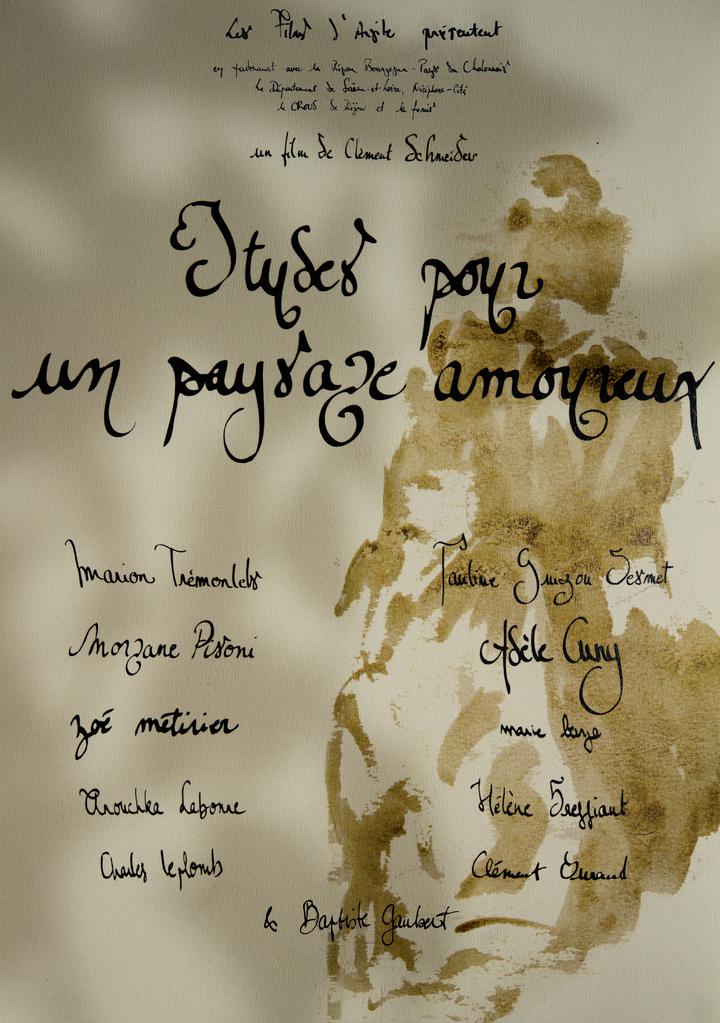 Les Films d'Argile présentent
en partenariat avec la Région Bourgogne - Pays du Chalonnais
le Département de Saône-et-Loire, Nicéphore-Cité
le CROUS de Dijon et la femis
un film de Clément Schneider
Etudes pour
un paysage amoureux
Marion Trémontels
Pauline Guigou Desmet
Morgane Pisoni
Adèle Cuny
zoé métivier
marie
Anouchka Labonne
Hélène
Charles leplomb
Clément Durand
& Baptiste Gaubert